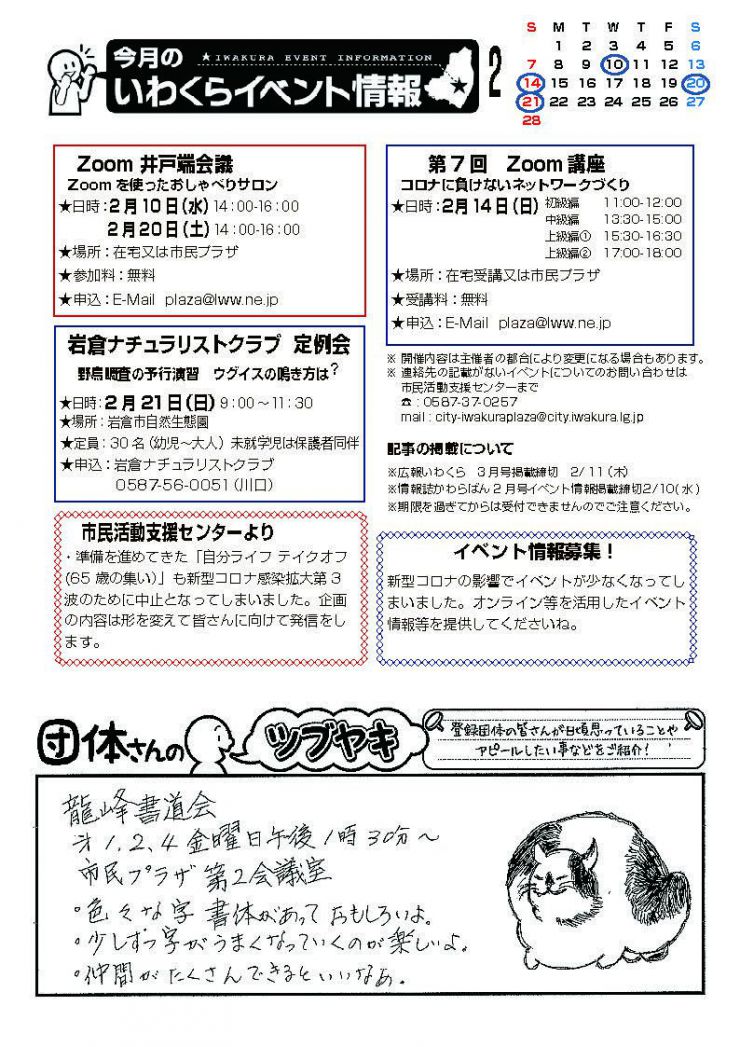 今月の
★ IWAKURA EVENT INFORMATION
いわくらイベント情報
2
S M T W T F S
1 2 3 4 5 6
7 8 9 10 11 12 13
14 15 16 17 18 19 20
21 22 23 24 25 26 27
28
Zoom 井戸端会議
Zoomを使ったおしゃべりサロン
★日時：2月10日(水) 14:00-16:00
2月20日(土) 14:00-16:00
★場所：在宅又は市民プラザ
★参加料：無料
★申込：E-Mail plaza@lww.ne.jp
第7回 Zoom 講座
コロナに負けないネットワークづくり
★日時：2月14日(日) 初級編 11:00-12:00
中級編 13:30-15:00
上級編① 15:30-16:30
上級編② 17:00-18:00
★場所：在宅受講又は市民プラザ
★受講料：無料
★申込：E-Mail plaza@lww.ne.jp
岩倉ナチュラリストクラブ 定例会
野鳥調査の予行演習 ウグイスの鳴き方は？
★日時：2月21日(日) 9:00～11:30
★場所：岩倉市自然生態園
★定員：30名(幼児～大人) 未就学児は保護者同伴
★申込：岩倉ナチュラリストクラブ
0587-56-0051(川口)
※ 開催内容は主催者の都合により変更になる場合もあります。
※ 連絡先の記載がないイベントについてのお問い合わせは
市民活動支援センターまで
☎：0587-37-0257
mail：city-iwakuraplaza@city.iwakura.lg.jp
記事の掲載について
※広報いわくら 3月号掲載締切 2/11(木)
※情報誌かわらばん2月号イベント情報掲載締切2/10(水)
※期限を過ぎてからは受付できませんのでご注意ください。
市民活動支援センターより
・準備を進めてきた「自分ライフ テイクオフ
(65歳の集い)」も新型コロナ感染拡大第3
波のために中止となってしまいました。企画
の内容は形を変えて皆さんに向けて発信をし
ます。
イベント情報募集！
新型コロナの影響でイベントが少なくなってし
まいました。オンライン等を活用したイベント
情報等を提供してくださいね。
団体さんの
ツブヤキ
登録団体の皆さんが日頃思っていることや
アピールしたい事などをご紹介！
龍峰書道会
㐧1,2,4金曜日午後1時30分～
市民プラザ 第2会議室
・色々な字 書体があって おもしろいよ。
・少しずつ字がうまくなっていくのが楽しいよ。
・仲間が たくさんできるといいなあ。